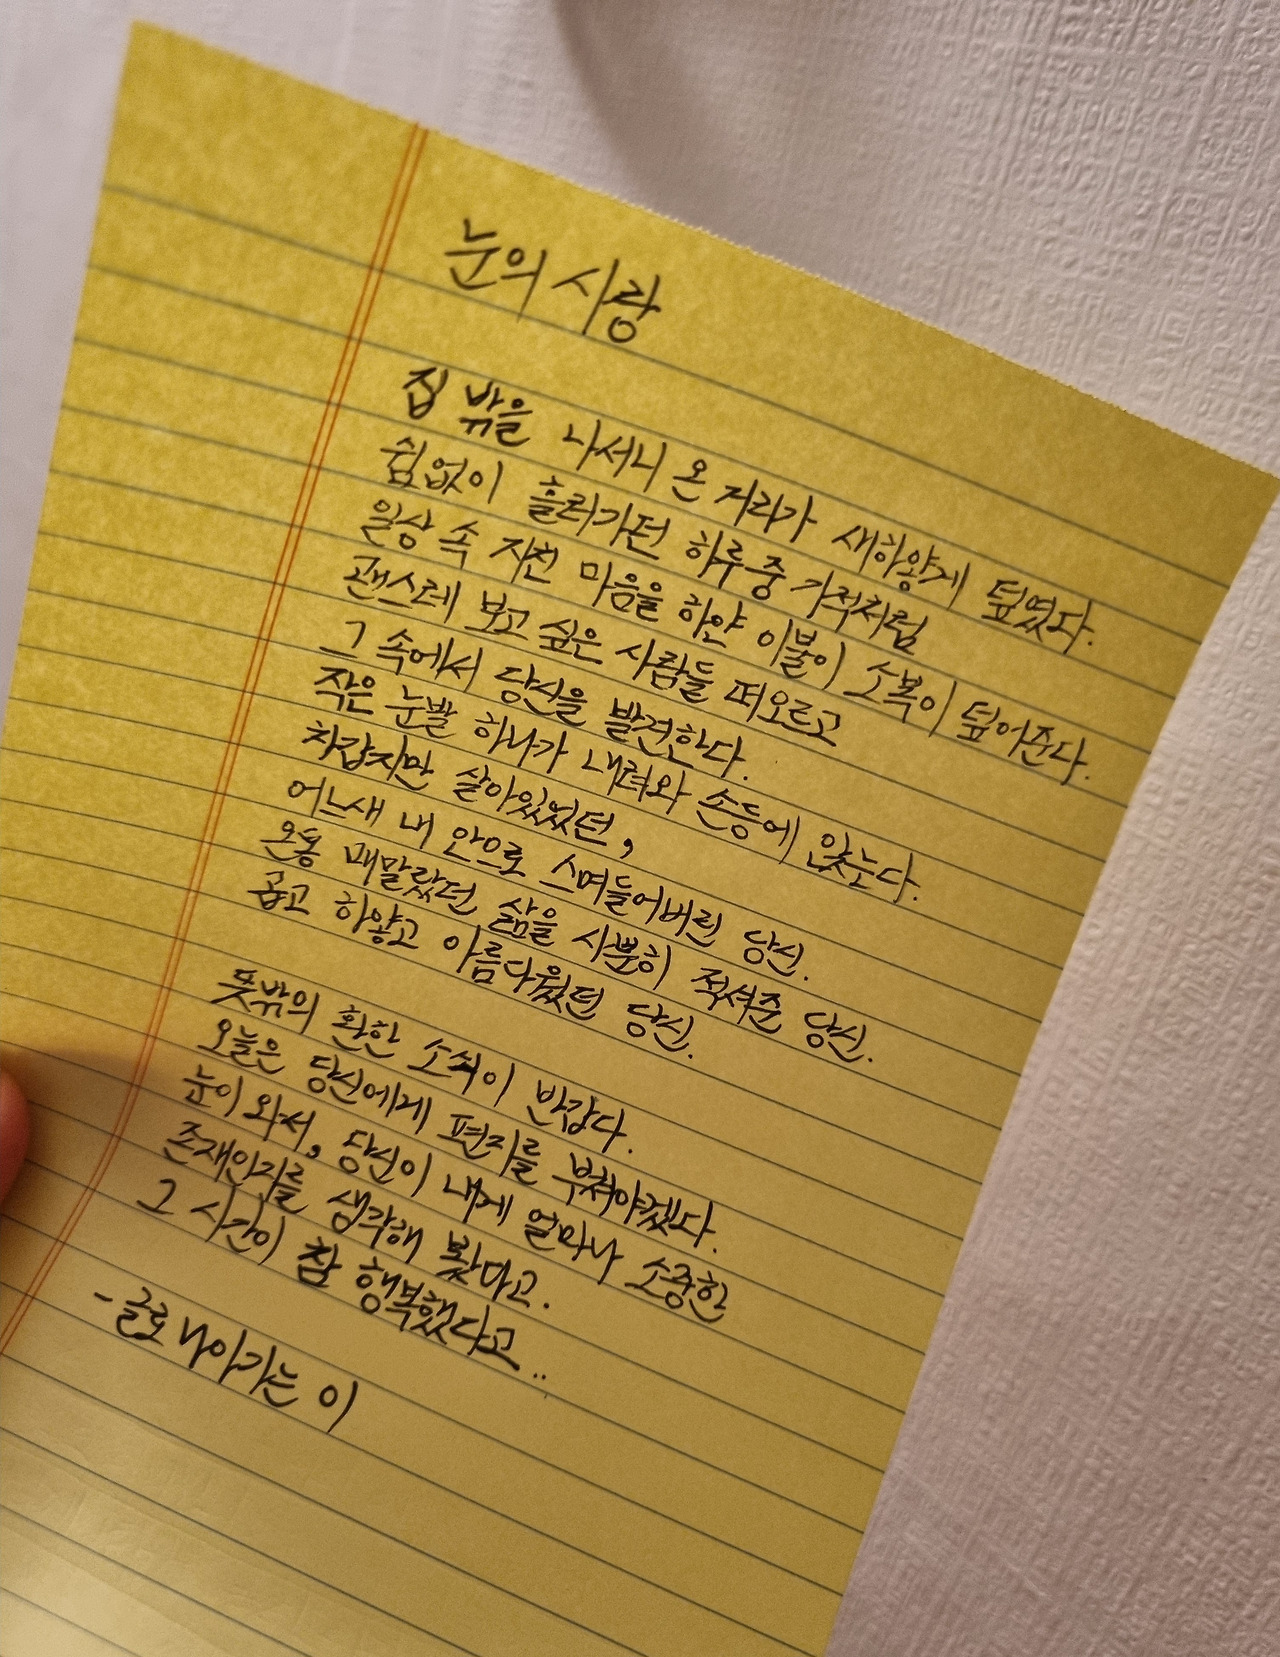 눈의 사랑
집 밖을 나서니 온 거리가 새하얗게 덮였다.
쉼없이 흘러가던 하루 중 기적처럼
일상 속 지친 마음을 하얀 이불이 소복이 덮어준다.
괜스레 보고 싶은 사람들 떠오르고
그 속에서 당신을 발견한다.
작은 눈발 하나가 내려와 손등에 앉는다.
차갑지만 살아있었던,
어느새 내 안으로 스며들어버린 당신.
온통 메말랐던 삶을 사뿐히 적셔준 당신.
곱고 하얗고 아름다웠던 당신.
뜻밖의 환한 소식이 반갑다.
오늘은 당신에게 편지를 부쳐야겠다.
눈이 와서, 당신이 내게 얼마나 소중한
존재인지를 생각해 봤다고.
그 시간이 참 행복했다고..
- 글로 나아가는 이